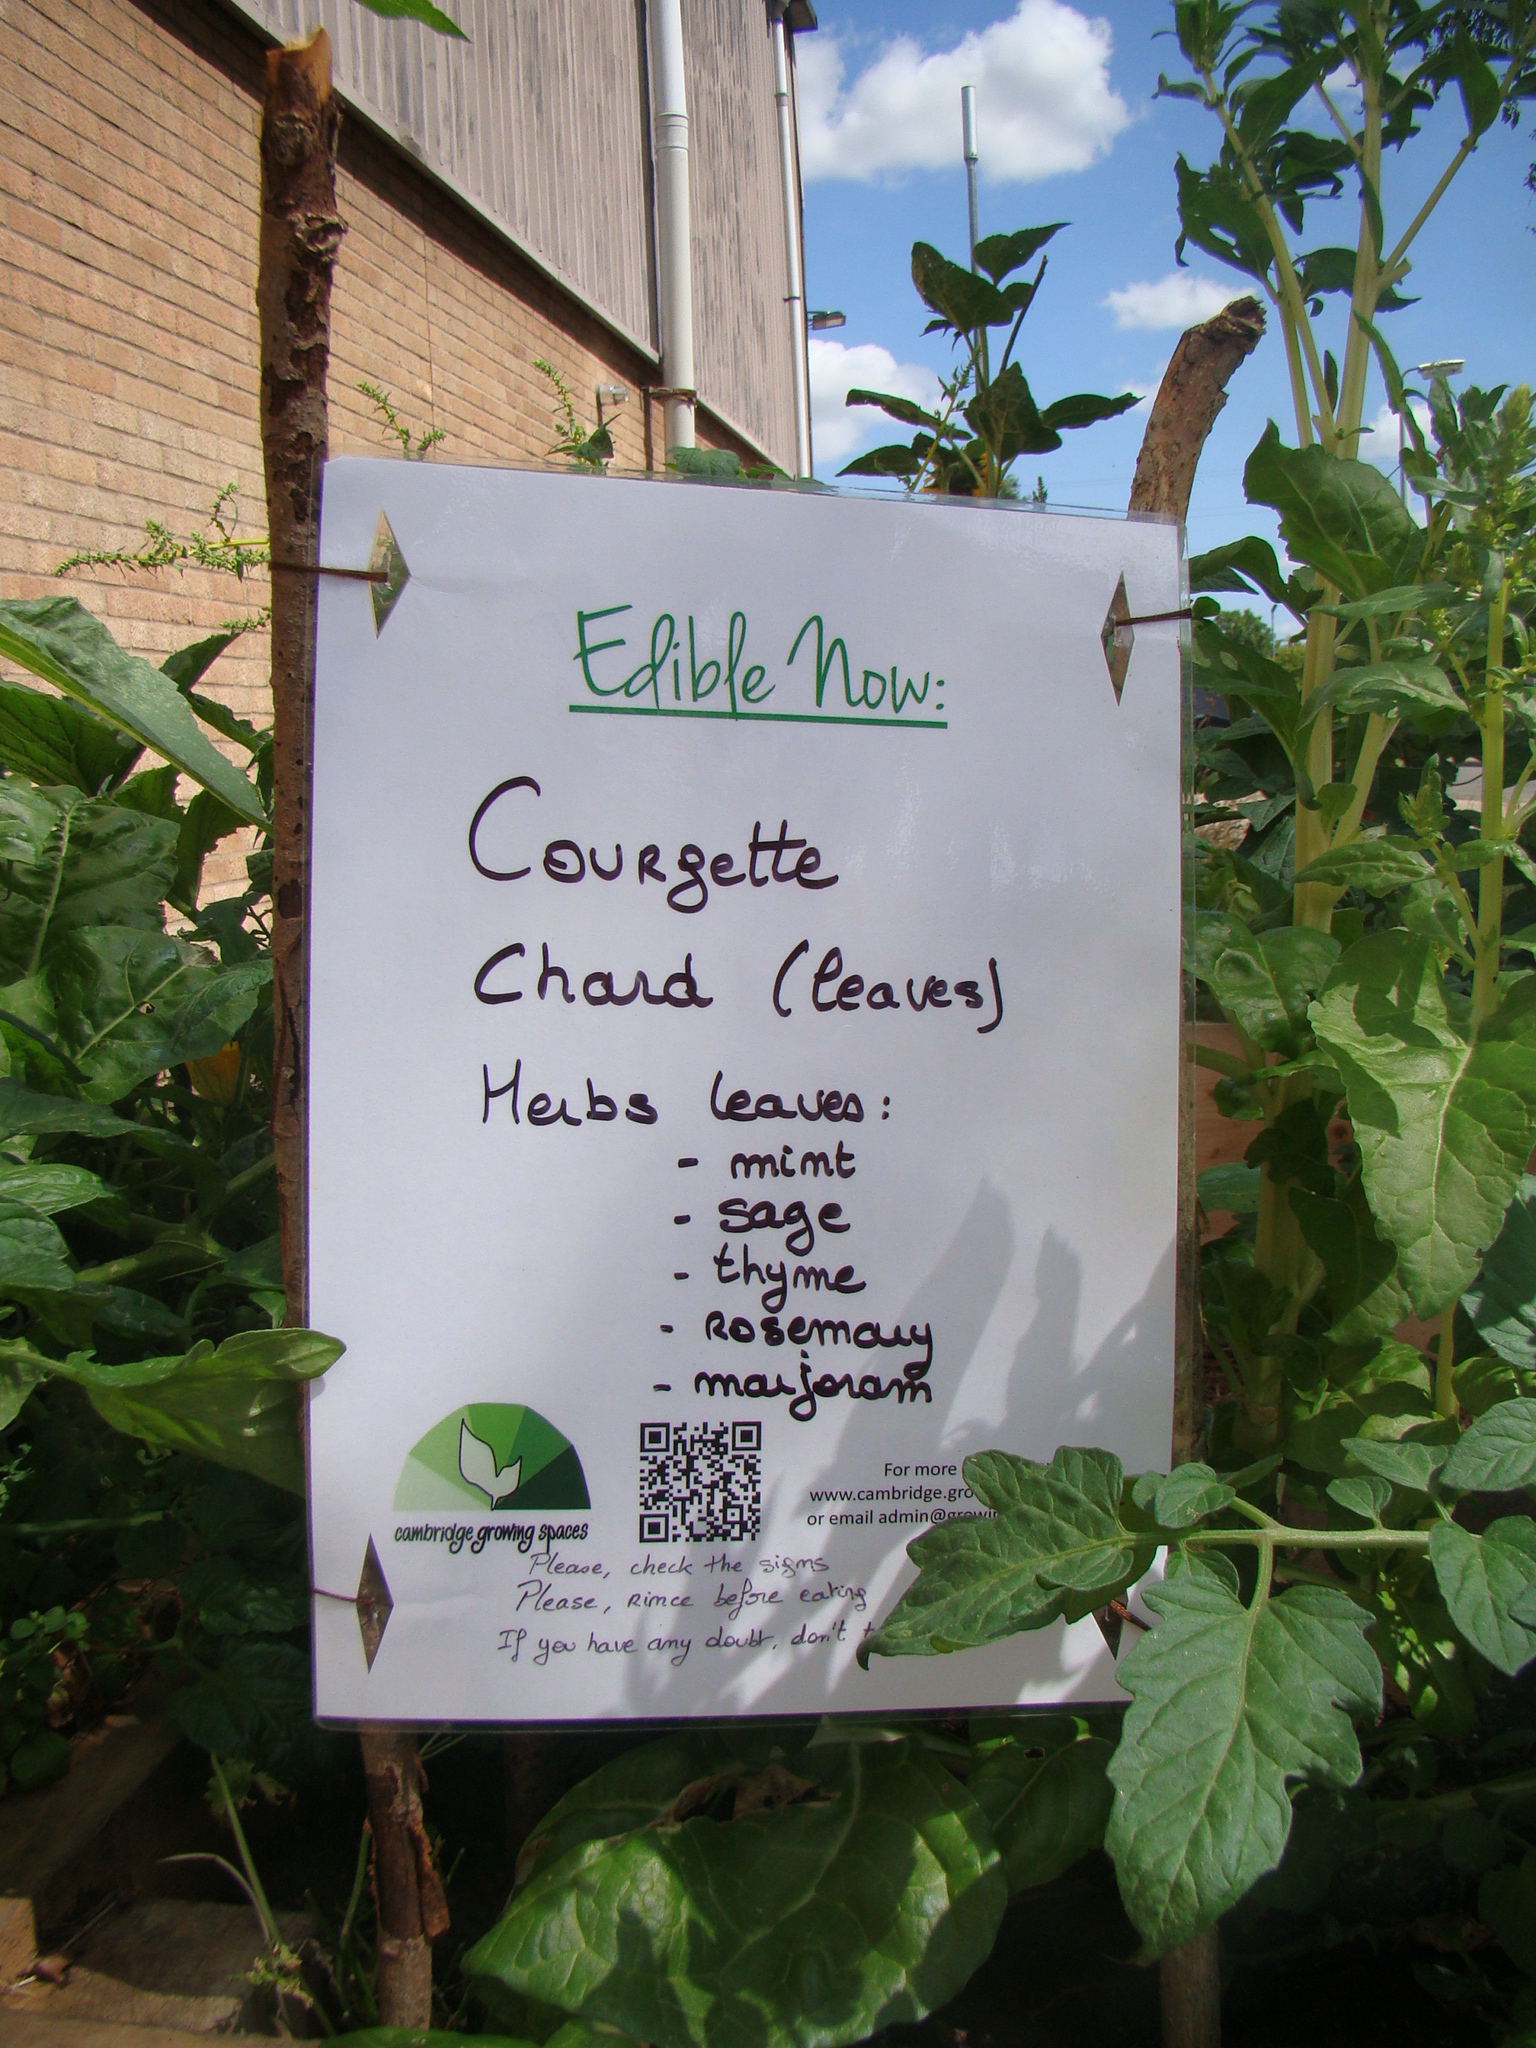 Edible Now:
Courgette
Chard (leaves)
Herbs leaves:
- mint
- sage
- thyme
- Rosemary
- marjoram
cambridge growing spaces
For more
www.cambridge.gro
or email admin@growin
Please, check the signs
Please, rince before eating
If you have any doubt, don't